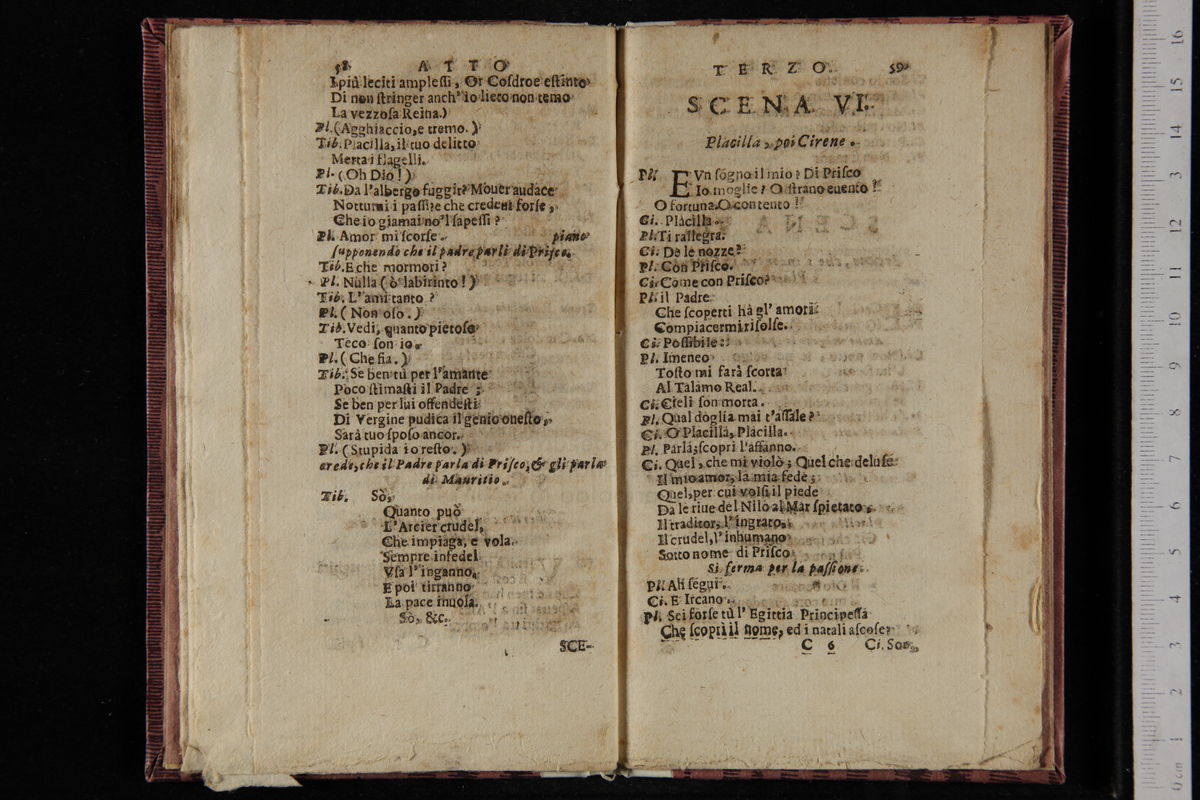 58 ATTO
I più leciti ampleſſi, Or Coſdroe eſtinto
Di non ſtringer anch'io lieto non temo
La vezzoſa Reina.)
Pl. (Agghiaccio, e tremo.)
Tib. Placilla, il tuo delitto
Merta i flagelli.
Pl. (Oh Dio!)
Tib. Da l'albergo fuggir? Mouer audace
Notturni i paſſi? e che credeui forſe,
Che io giamai no'l ſapeſſi?
Pl. Amor mi ſcorſe. piano
ſupponendo che il padre parli di Priſco.
Tib. E che mormori?
Pl. Nulla (ò labirinto!)
Tib. L'ami tanto?
Pl. (Non oſo.)
Tib. Vedi, quanto pietoſo
Teco ſon io.
Pl. (Che fia.)
Tib. Se ben tù per l'amante
Poco ſtimaſti il Padre;
Se ben per lui offendeſti
Di Vergine pudica il genio oneſto,
Sarà tuo ſpoſo ancor.
Pl. (Stupida io reſto.)
crede, che il Padre parla di Priſco, & gli parla
di Mauritio.
Tib. Sò,
Quanto può
L'Arcier crudel,
Che impiaga, e vola.
Sempre infedel
Vſa l'inganno,
E poi tiranno
La pace inuola.
Sò, &c.
SCE-
TERZO. 59
SCENA VI.
Placilla, poi Cirene.
Pl. E Vn ſogno il mio? Di Priſco
Io moglie? O ſtrano euento!
O fortuna. O contento!
Ci. Placilla.
Pl. Ti rallegra.
Ci. De le nozze?
Pl. Con Priſco.
Ci. Come con Priſco?
Pl. il Padre
Che ſcoperti hà gl'amori
Compiacermi riſolſe.
Ci. Poſſibile:
Pl. Imeneo
Toſto mi farà ſcorta
Al Talamo Real.
Ci. Cieli ſon morta.
Pl. Qual doglia mai t'aſſale?
Ci. O Placilla, Placilla.
Pl. Parla; ſcopri l'affanno.
Ci. Quel, che mi violò; Quel che deluſe
Il mio amor, la mia fede;
Quel, per cui volſi il piede
Da le riue del Nilo al Mar ſpietato,
Il traditor, l'ingrato,
Il crudel, l'inhumano
Sotto nome di Priſco
Si ferma per la paſſione.
Pl. Ah ſegui.
Ci. E Ircano.
Pl. Sei forſe tù l'Egittia Principeſſa
Che ſcoprì il nome, ed i natali aſcoſe?
C 6 Ci. Son,